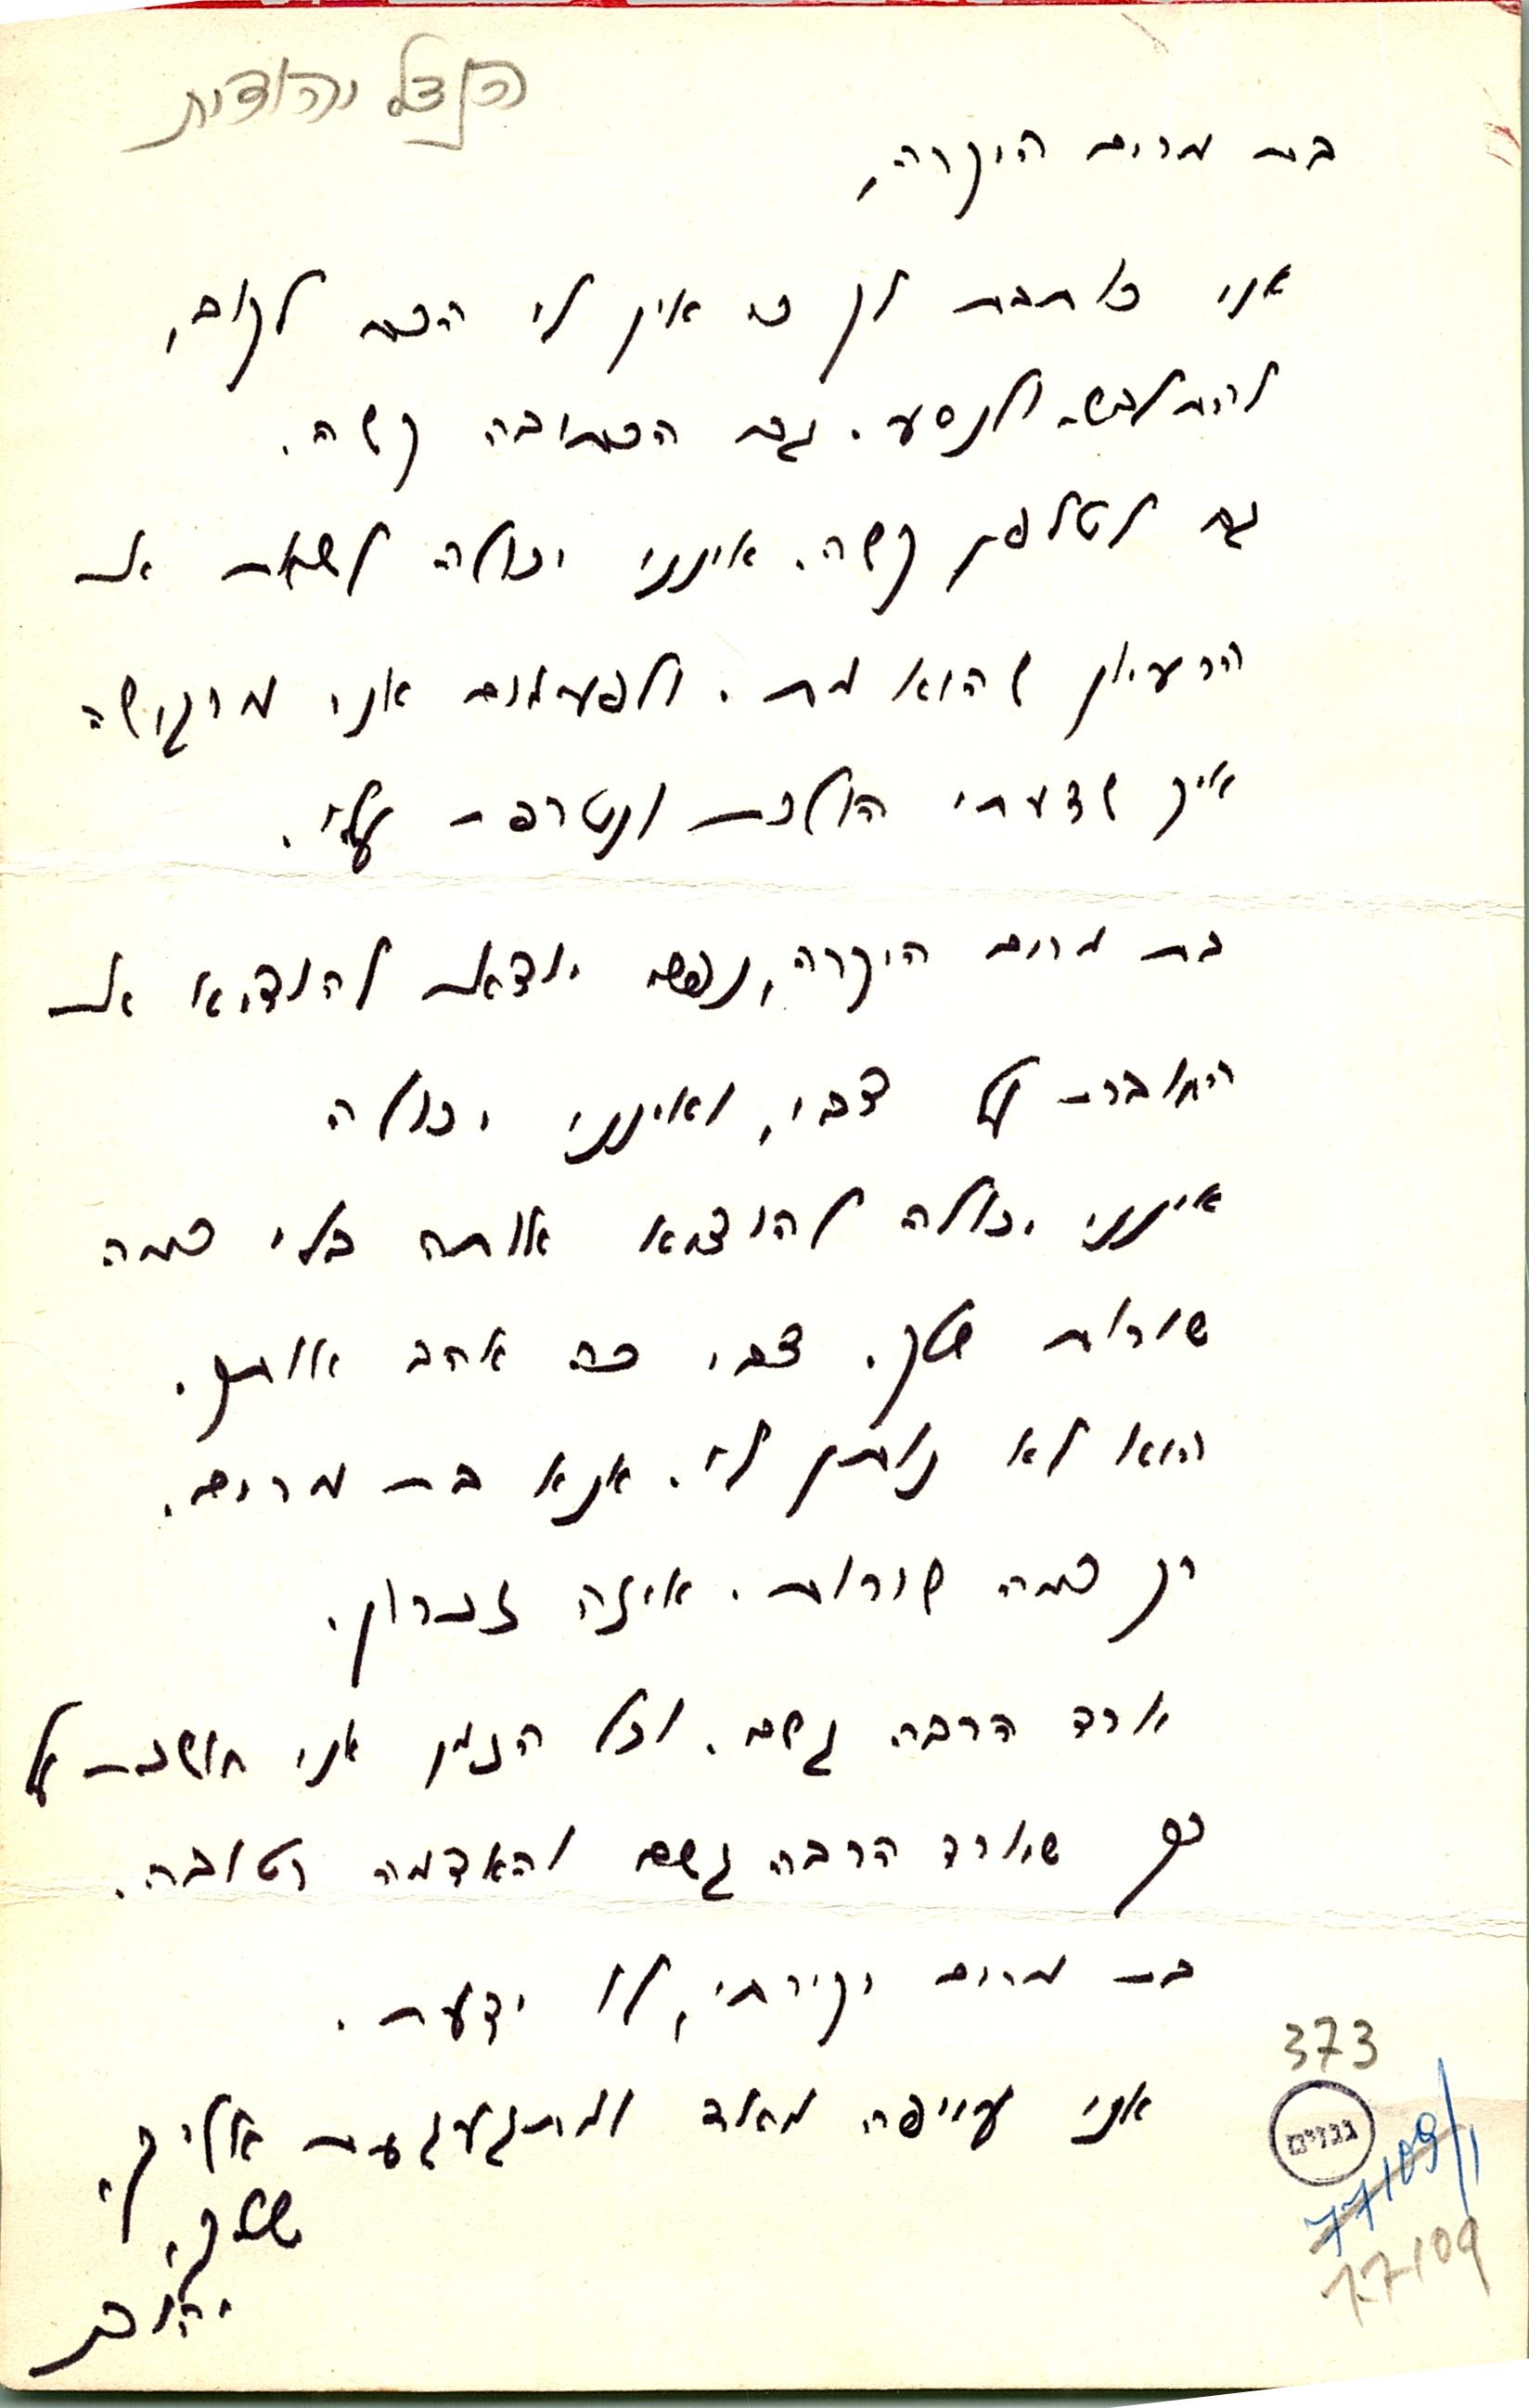 הנדל יהודית
בת מרים היקרה,
אני כותבת לך כי אין לי הכח לקום,
להתלבש ולנסע. גם הכתיבה קשה.
גם לטלפן קשה. אינני יכולה לשאת את
הרעיון שהוא מת. ולפעמים אני מרגישה
איך שדעתי הולכת ונטרפת עלי.
בת מרים היקרה, יוצאת להוציא את
החוברת על צבי, ואינני יכולה
אינני יכולה להוציא אותה בלי כמה
שורות שלך. צבי כה אהב אותך.
הוא לא נותן לי. אנא בת מרים.
רק כמה שורות. איזה זכרון.
יורד הרבה גשם. וכל הזמן אני חושבת על
כך שיורד הרבה גשם והאדמה רטובה.
בת מרים יקירתי, לו ידעת.
אני עייפה מאד ומתגעגעת אליך,
שלך,
יהודית
373
גנזים
77109/1
77109